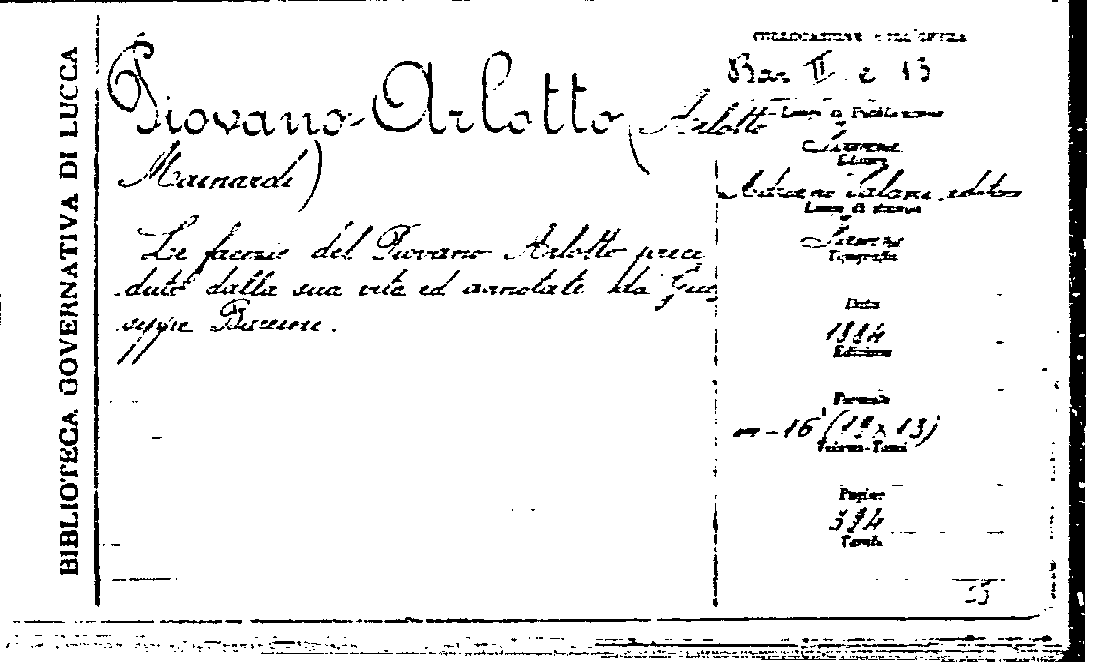 BIBLIOTECA GOVERNATIVA DI LUCCA
Piovano Arlotto (Arlotto
Mainardi)
Le facezie del Piovano Arlotto prece
dute dalla sua vita ed annotate da Giu
seppe Baccini.
COLLOCAZIONE DELL'OPERA
Bar II e 13
Luogo di Pubblicazione
Firenze
Editore
Adriano Salani editore
Luogo di stampa
Firenze
Tipografia
Data
1884
Edizione
Formato
in-16 (19x13)
Volume-Tomi
Pagine
384
Tavole